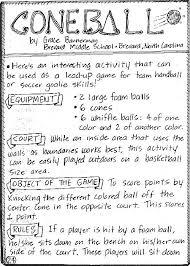 CONEBALL
by Grace Bannerman
Brevard Middle School • Brevard, North Carolina
• Here's an interesting activity that can
be used as a lead-up game for team handball
or soccer goalie skills!
EQUIPMENT
• 2 large foam balls
• 6 cones
• 6 whiffle balls: 4 of one
color and 2 of another color.
COURT: While an indoor area that uses the
walls as boundaries works best, this activity
can be easily played outdoors on a basketball
size area.
OBJECT OF THE GAME: To score points by
knocking the different colored ball off the
center cone in the opposite court. This scores
1 point.
RULES: If a player is hit by a foam ball,
he/she sits down on the bench on his/her own
side of the court. These players will sit down